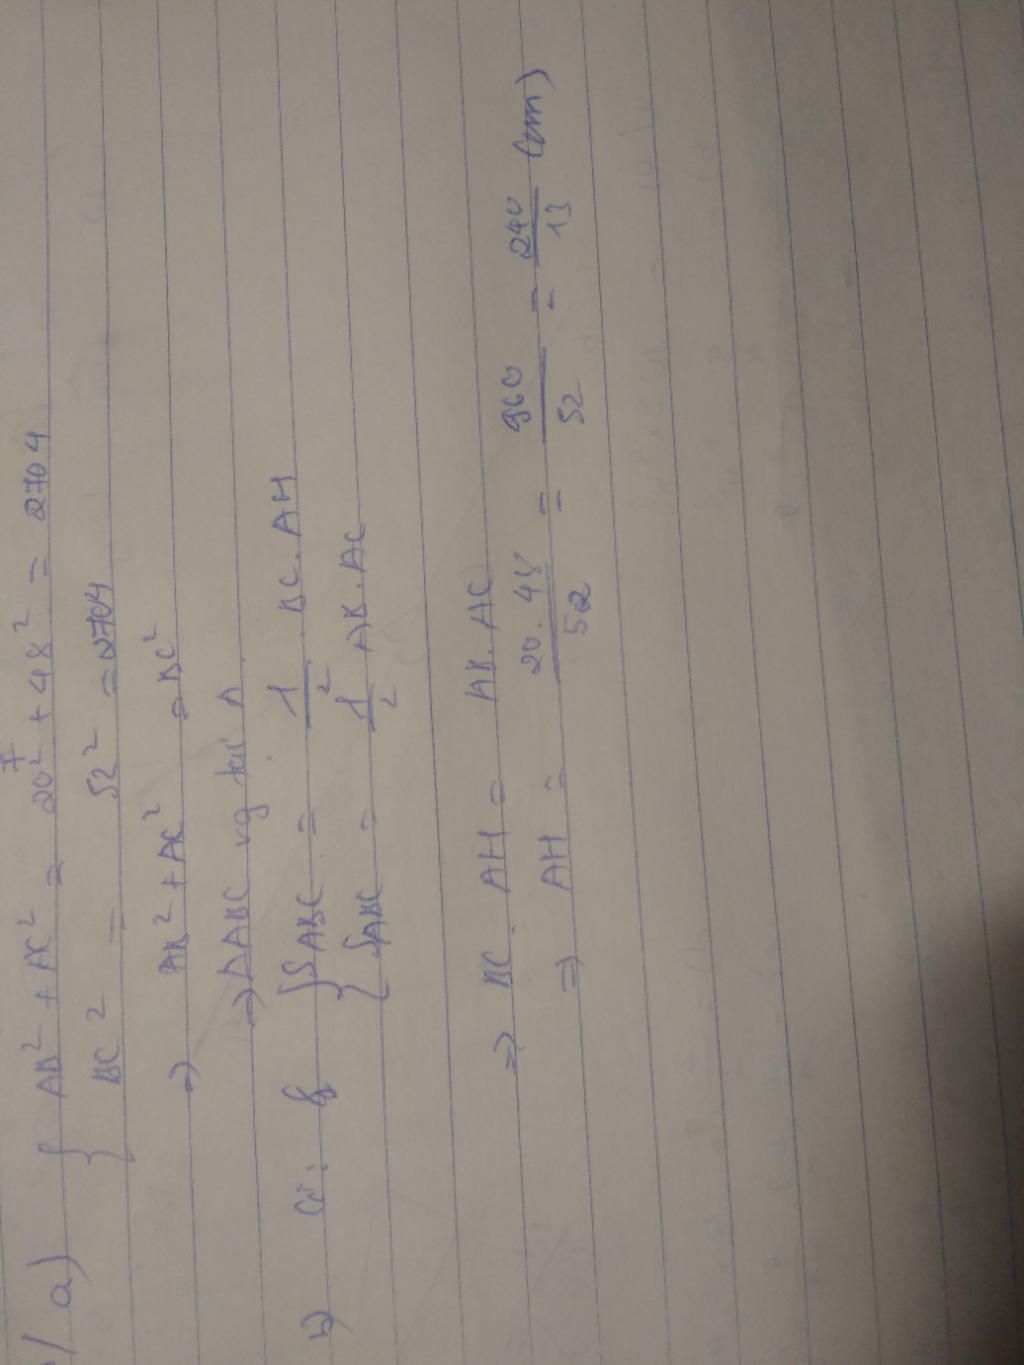 / a) { AB² + AC² = 20² + 48² = 2704
BC² = 52² = 2704
=> AB² + AC² = BC²
=> ΔABC vg tại A
b) Có: { SABC = 1/2 . BC . AH
{ SABC = 1/2 AB . AC
=> BC . AH = AB . AC
=> AH = 20 . 48 / 52 = 960 / 52 = 240 / 13 (cm)